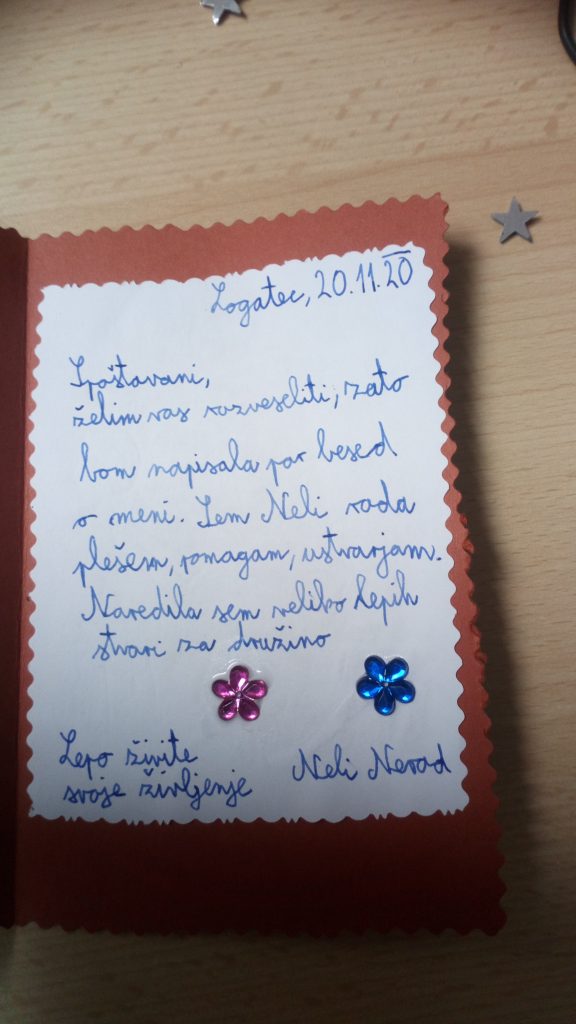 Logatec, 20.11.20
Spoštavani,
želim vas razveseliti, zato
bom napisala par besed
o meni. Sem Neli rada
plešem, pomagam, ustvarjam.
Naredila sem veliko lepih
stvari za družino
Lepo živite
svoje življenje
Neli Nerad